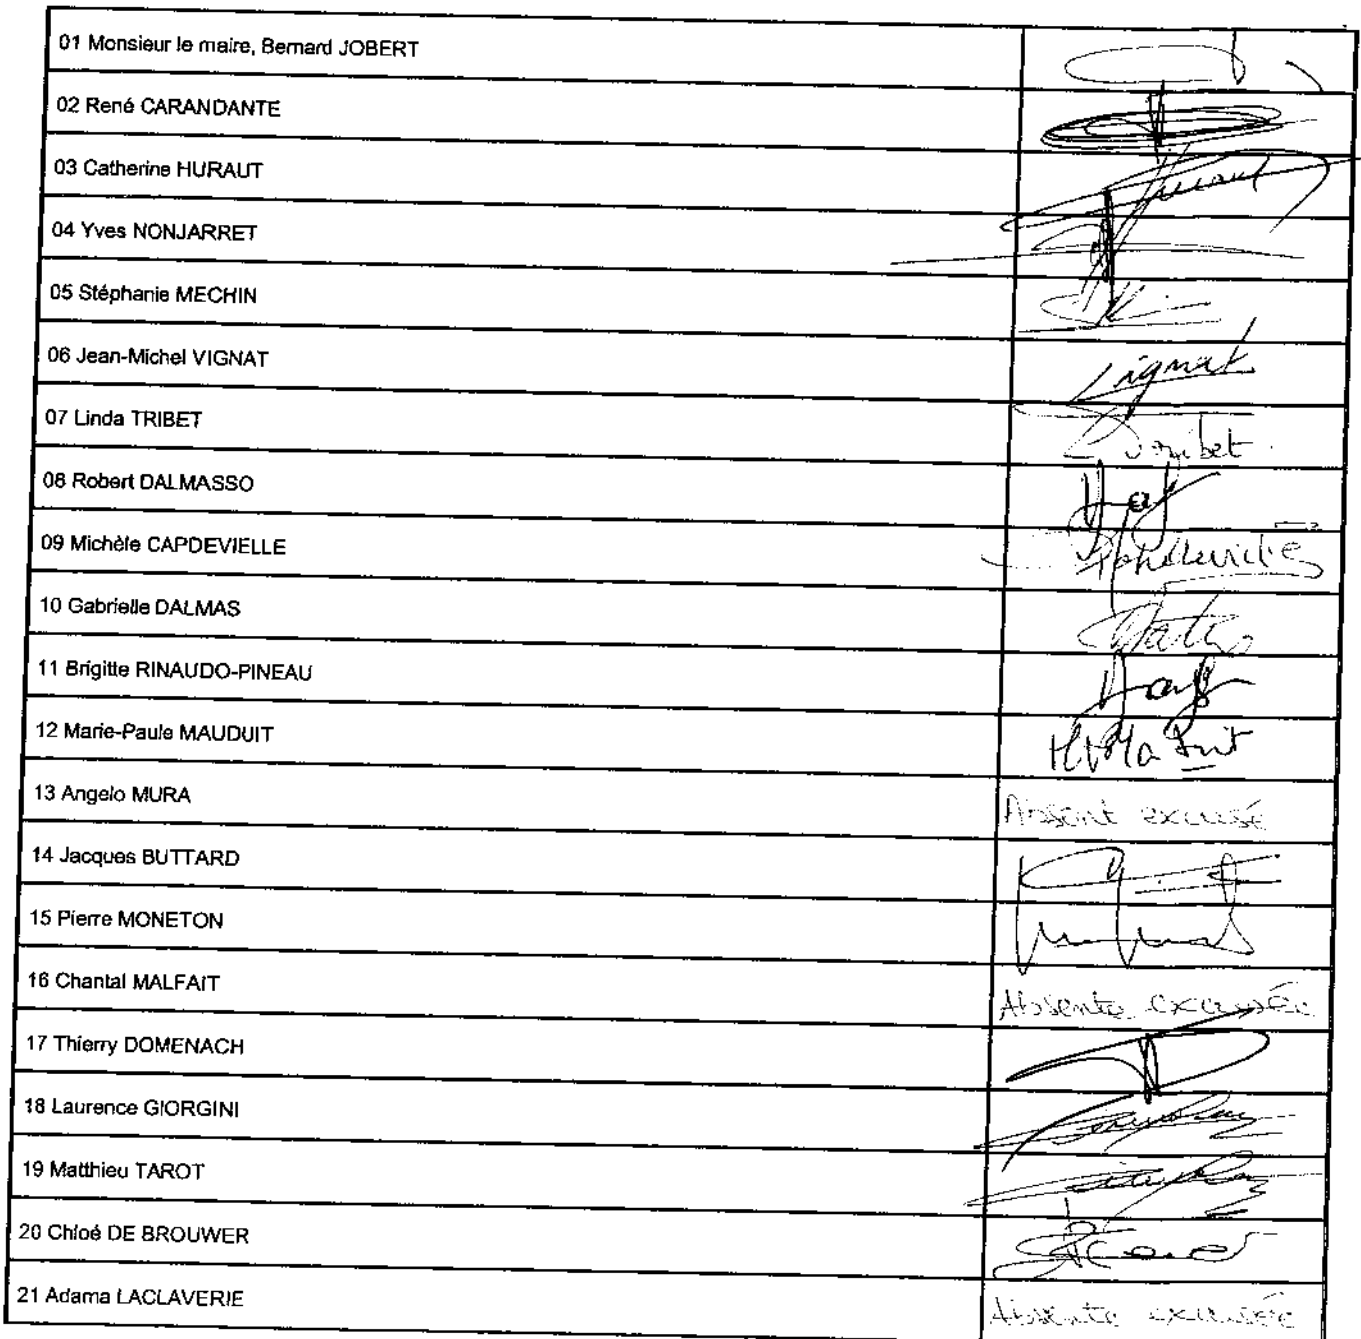 01 Monsieur le maire, Bernard JOBERT
02 René CARANDANTE
03 Catherine HURAUT
04 Yves NONJARRET
05 Stéphanie MECHIN
06 Jean-Michel VIGNAT
Vignat
07 Linda TRIBET
Tribet
08 Robert DALMASSO
09 Michèle CAPDEVIELLE
10 Gabrielle DALMAS
11 Brigitte RINAUDO-PINEAU
12 Marie-Paule MAUDUIT
13 Angelo MURA
Absent excusé
14 Jacques BUTTARD
15 Pierre MONETON
16 Chantal MALFAIT
Absente excusée
17 Thierry DOMENACH
18 Laurence GIORGINI
19 Matthieu TAROT
20 Chloé DE BROUWER
21 Adama LACLAVERIE
Absente excusée